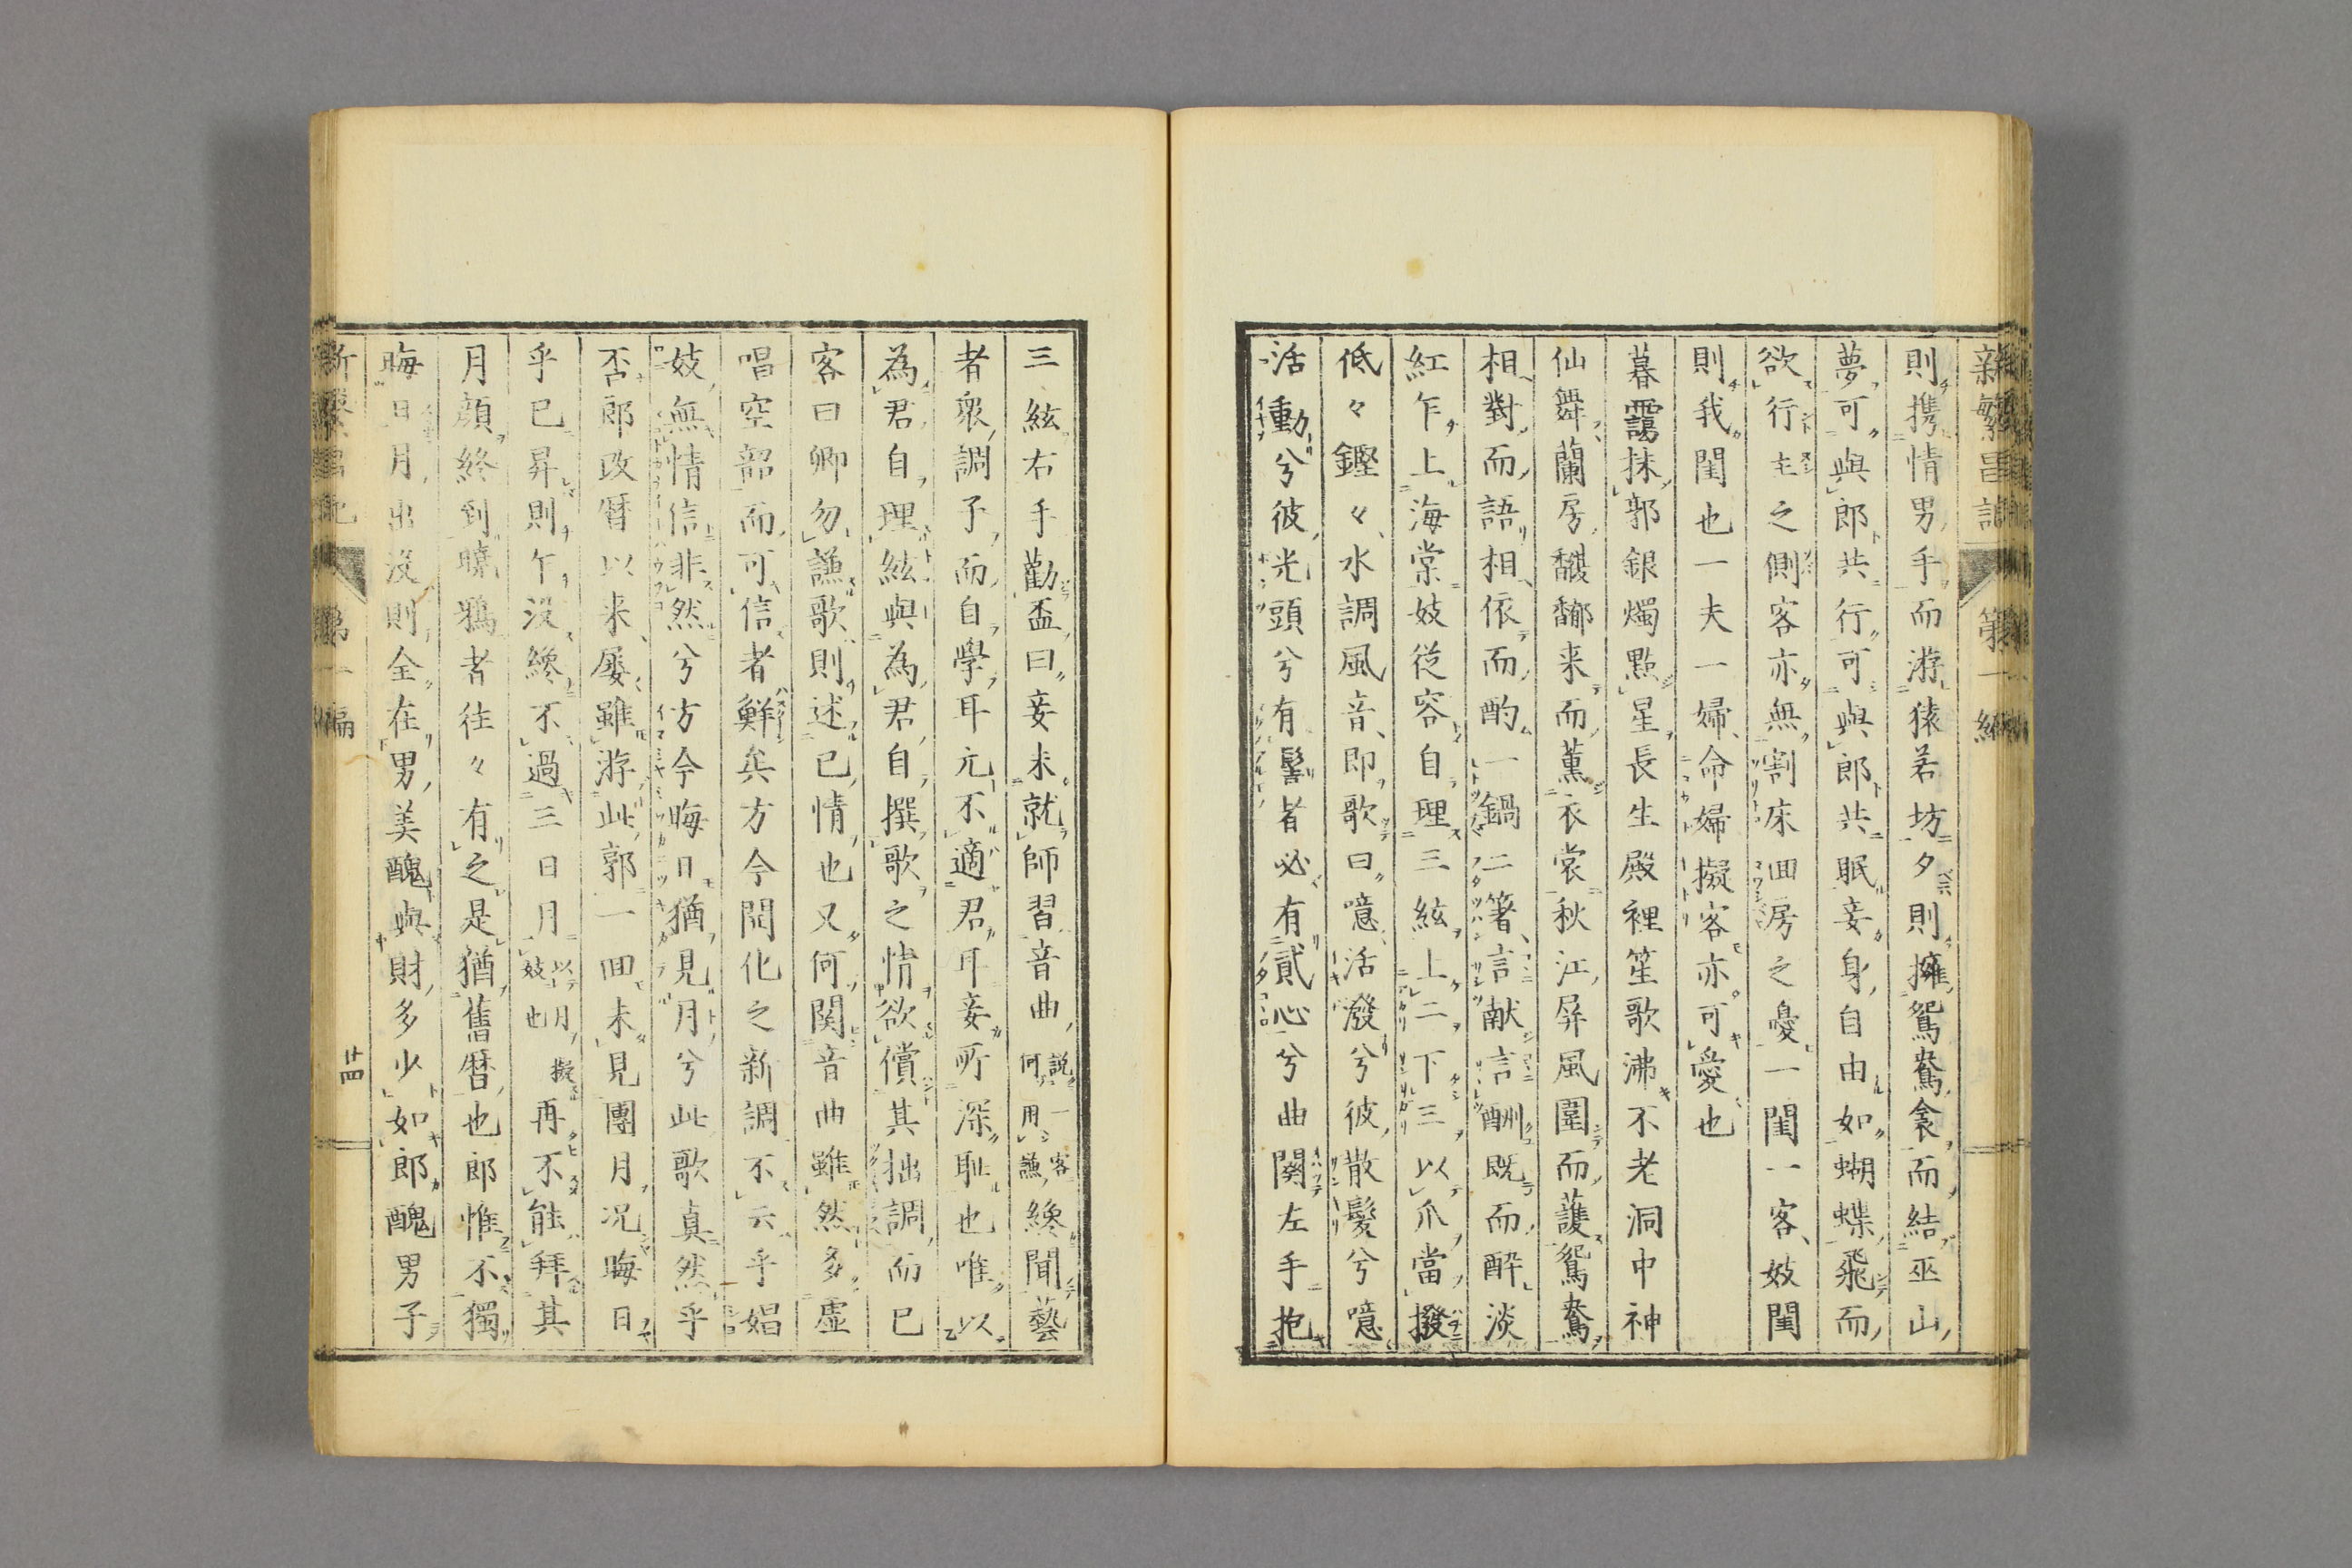 新繁昌記 第一編
則携情男手而游猿若坊夕則擁鴛鴦衾而結巫山
夢可與郎共行可與郎共眠妾身自由如蝴蝶飛而
欲行主之側客亦無割床回房之憂一閨一客妓閨
則我閨也一夫一婦命婦擬客亦可愛也
暮靄抹郭銀燭點星長生殿裡笙歌沸不老洞中神
仙舞蘭房馥郁来而薫衣裳秋江屏風圍而護鴛鴦
相對而語相依而酌一鍋二箸言献言酬既而醉淡
紅乍上海棠妓従容自理三絃上二下三以爪當撥
低々鏗々水調風音即歌曰噫活潑兮彼散髪兮噫
活動兮彼光頭兮有鬟者必有貳心兮曲闋左手抱
三絃右手勸盃曰妾未就師習音曲説一客何用謙纔聞藝
者衆調子而自學耳元不適君耳妾所深耻也唯以
為君自理絃與為君自撰歌之情欲償其拙調而已
客曰卿勿謙歌則述已情也又何関音曲雖然多虚
唱空韶而可信者鮮矣方今開化之新調不云乎娼
妓無情信非然兮方今晦日猶見月兮此歌真然乎
否郎改暦以来屡雖游此郭一回未見團月况晦日
乎已昇則乍没纔不過三日月以月擬妓也再不能拜其
月顔終到曉鴉者往々有之是猶舊暦也郎惟不獨
晦日月出没則全在男美醜與財多少如郎醜男子
新繁昌記 第一編 廿四